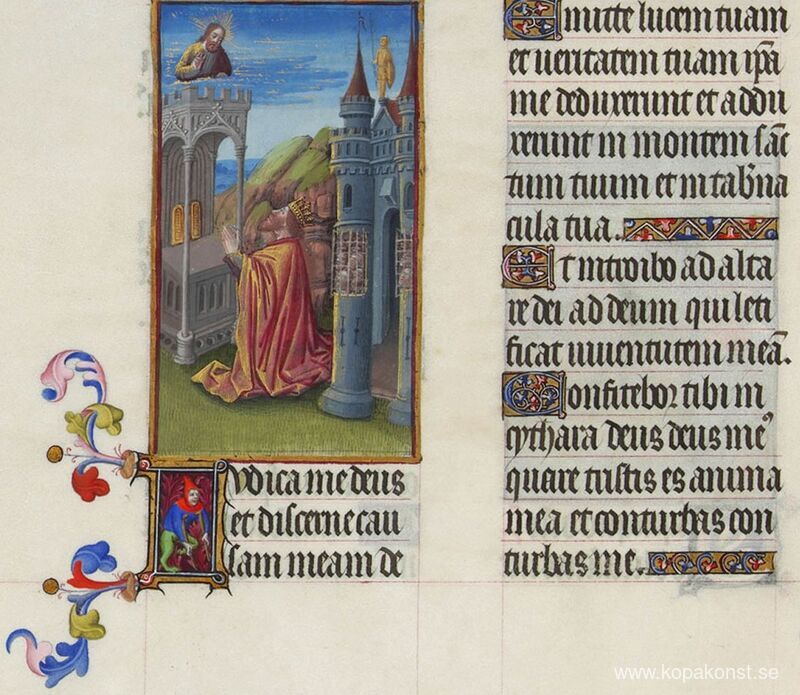 Iudica me deus
et discerne cau
sam meam de
Emitte lucem tuam
et ueritatem tuam ipa
me deduxerunt et addu
xerunt in montem sanc
tum tuum et in tab'na
cula tua.
Et introibo ad alta
re dei ad deum qui leti
ficat iuuentutem meā.
Confitebor tibi in
cythara deus deus me9
quare tristis es anima
mea et conturbas con
turbas me.
www.kopakonst.se